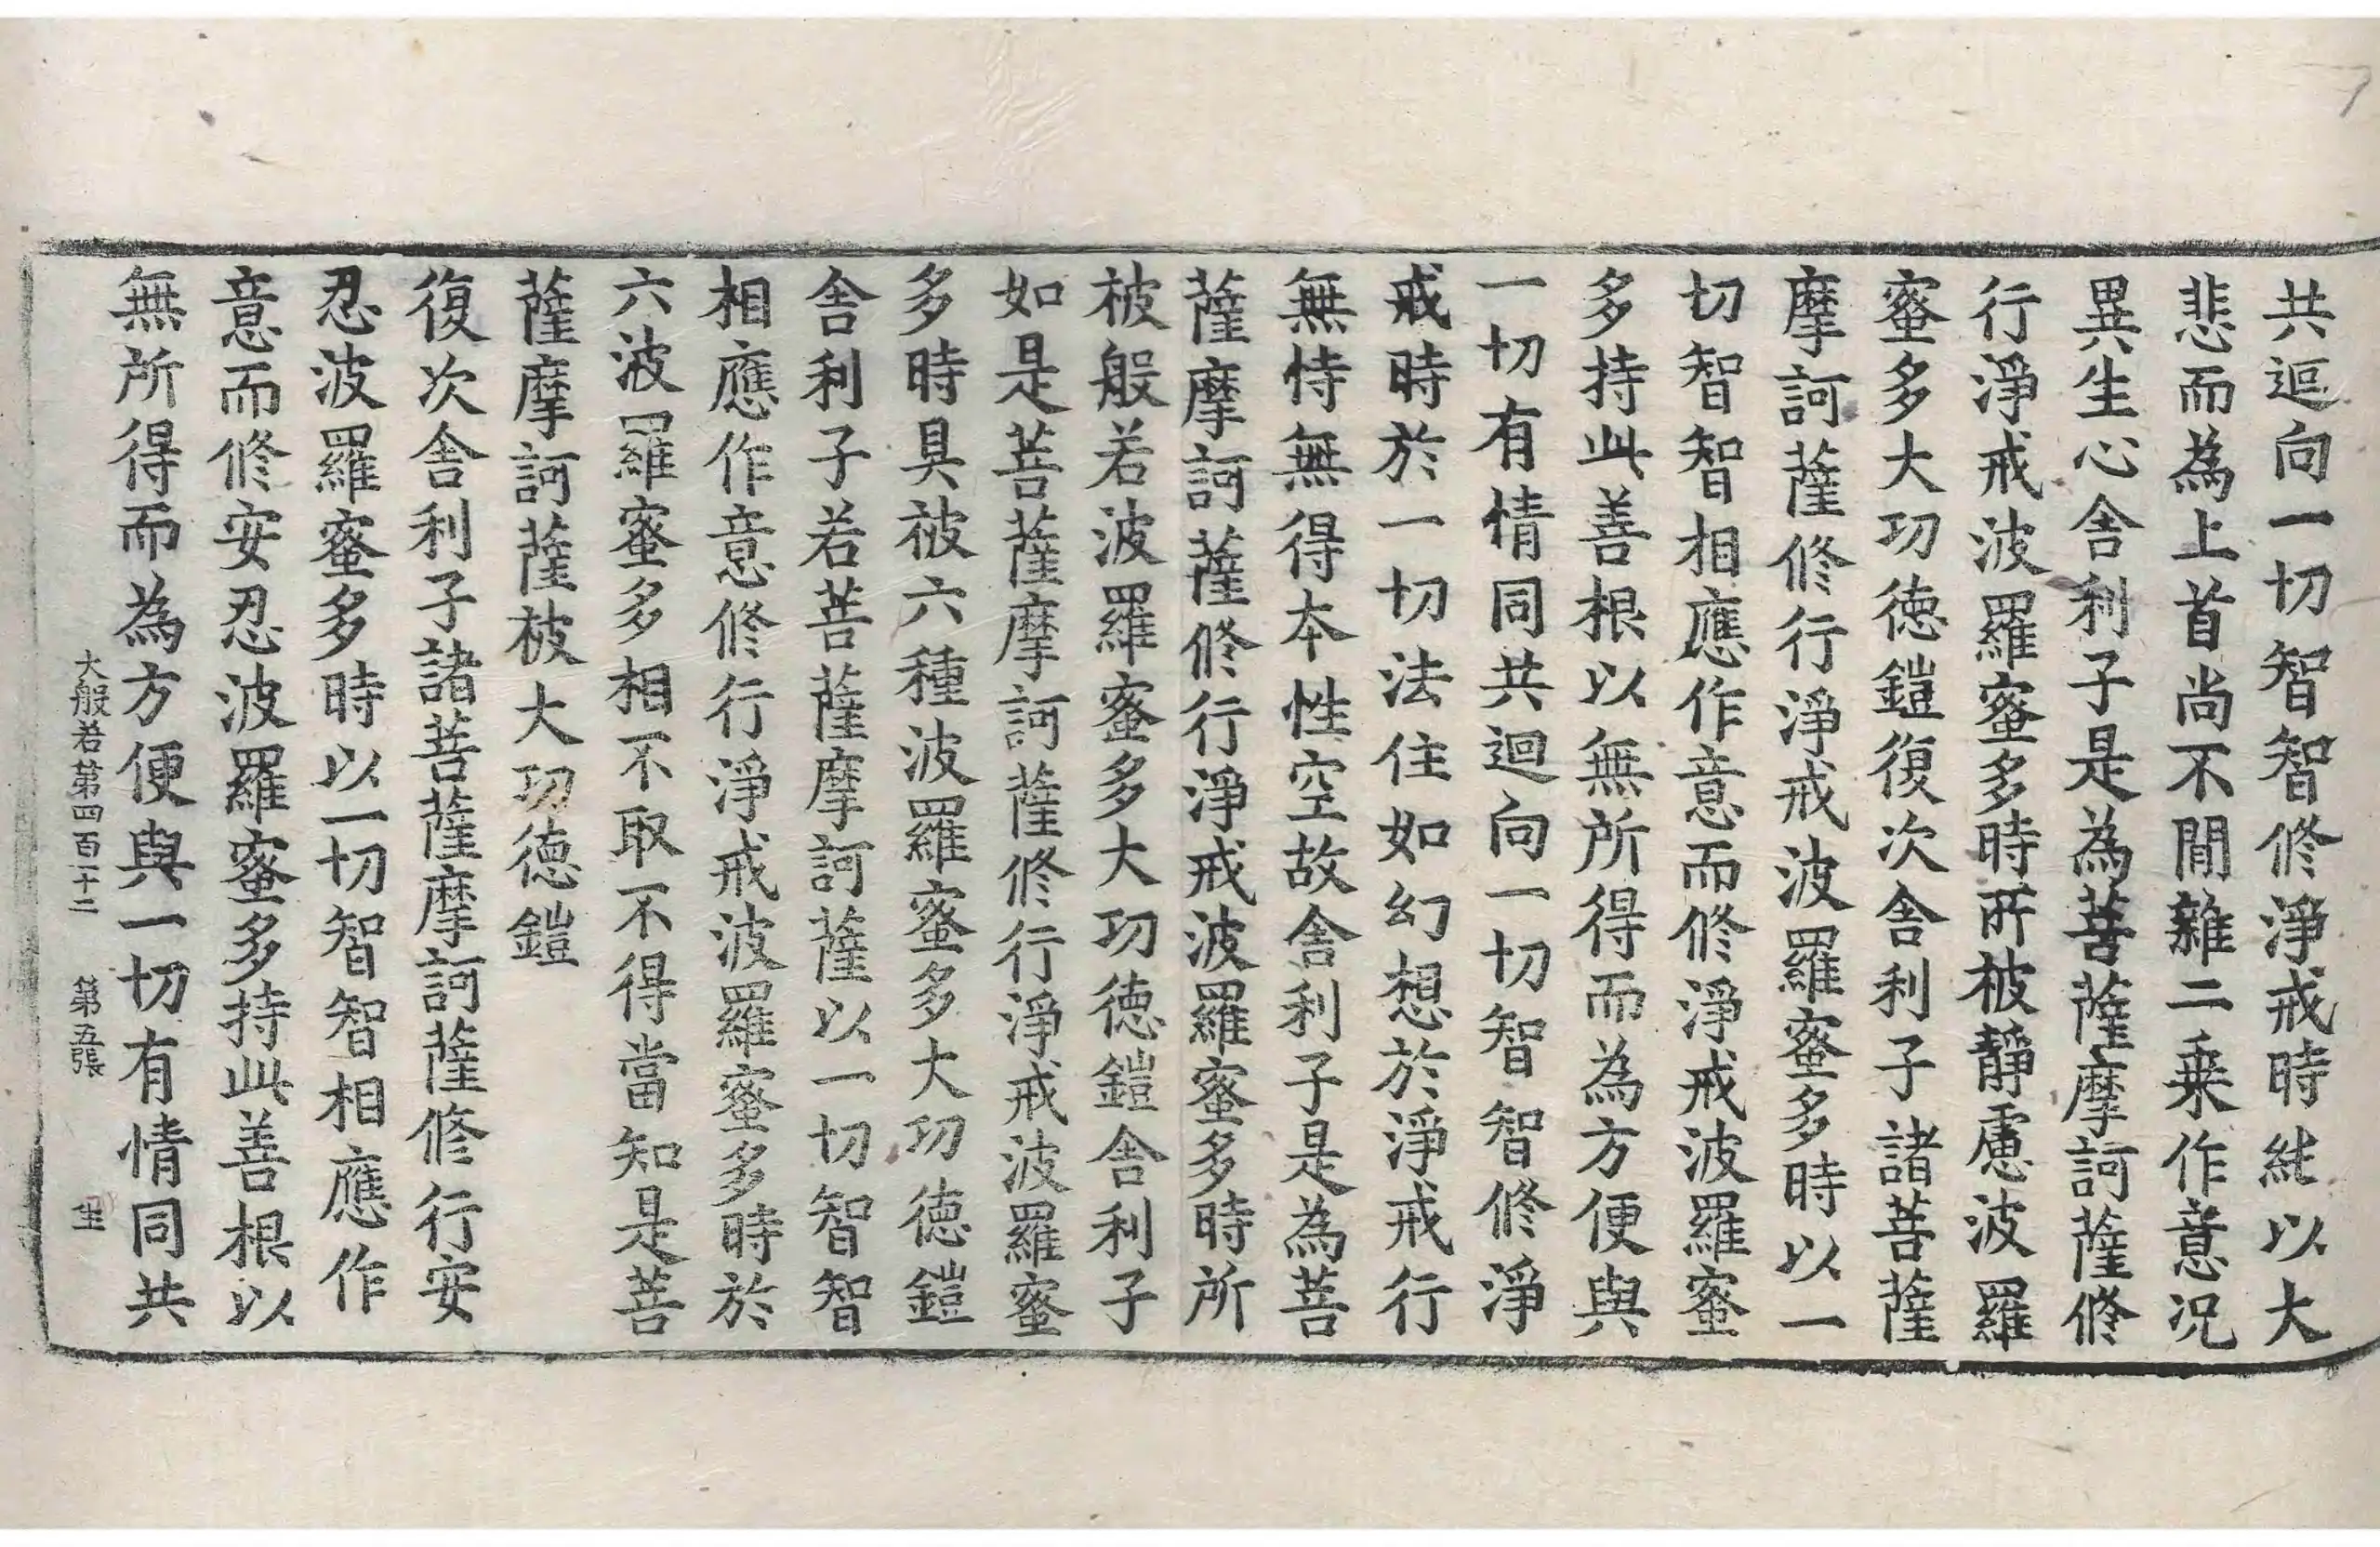 共迴向一切智智修淨戒時純以大
悲而為上首尚不閒雜二乗作意況
異生心舎利子是為菩薩摩訶薩修
行淨戒波羅蜜多時所被靜慮波羅
蜜多大功徳鎧復次舎利子諸菩薩
摩訶薩修行淨戒波羅蜜多時以一
切智智相應作意而修淨戒波羅蜜
多持此善根以無所得而為方便與
一切有情同共迴向一切智智修淨
戒時於一切法住如幻想於淨戒行
無恃無得本性空故舎利子是為菩
薩摩訶薩修行淨戒波羅蜜多時所
被般若波羅蜜多大功徳鎧舎利子
如是菩薩摩訶薩修行淨戒波羅蜜
多時具被六種波羅蜜多大功徳鎧
舎利子若菩薩摩訶薩以一切智智
相應作意修行淨戒波羅蜜多時於
六波羅蜜多相不取不得當知是菩
薩摩訶薩被大功徳鎧
復次舎利子諸菩薩摩訶薩修行安
忍波羅蜜多時以一切智智相應作
意而修安忍波羅蜜多持此善根以
無所得而為方便與一切有情同共
大般若第四百一十二 第五張